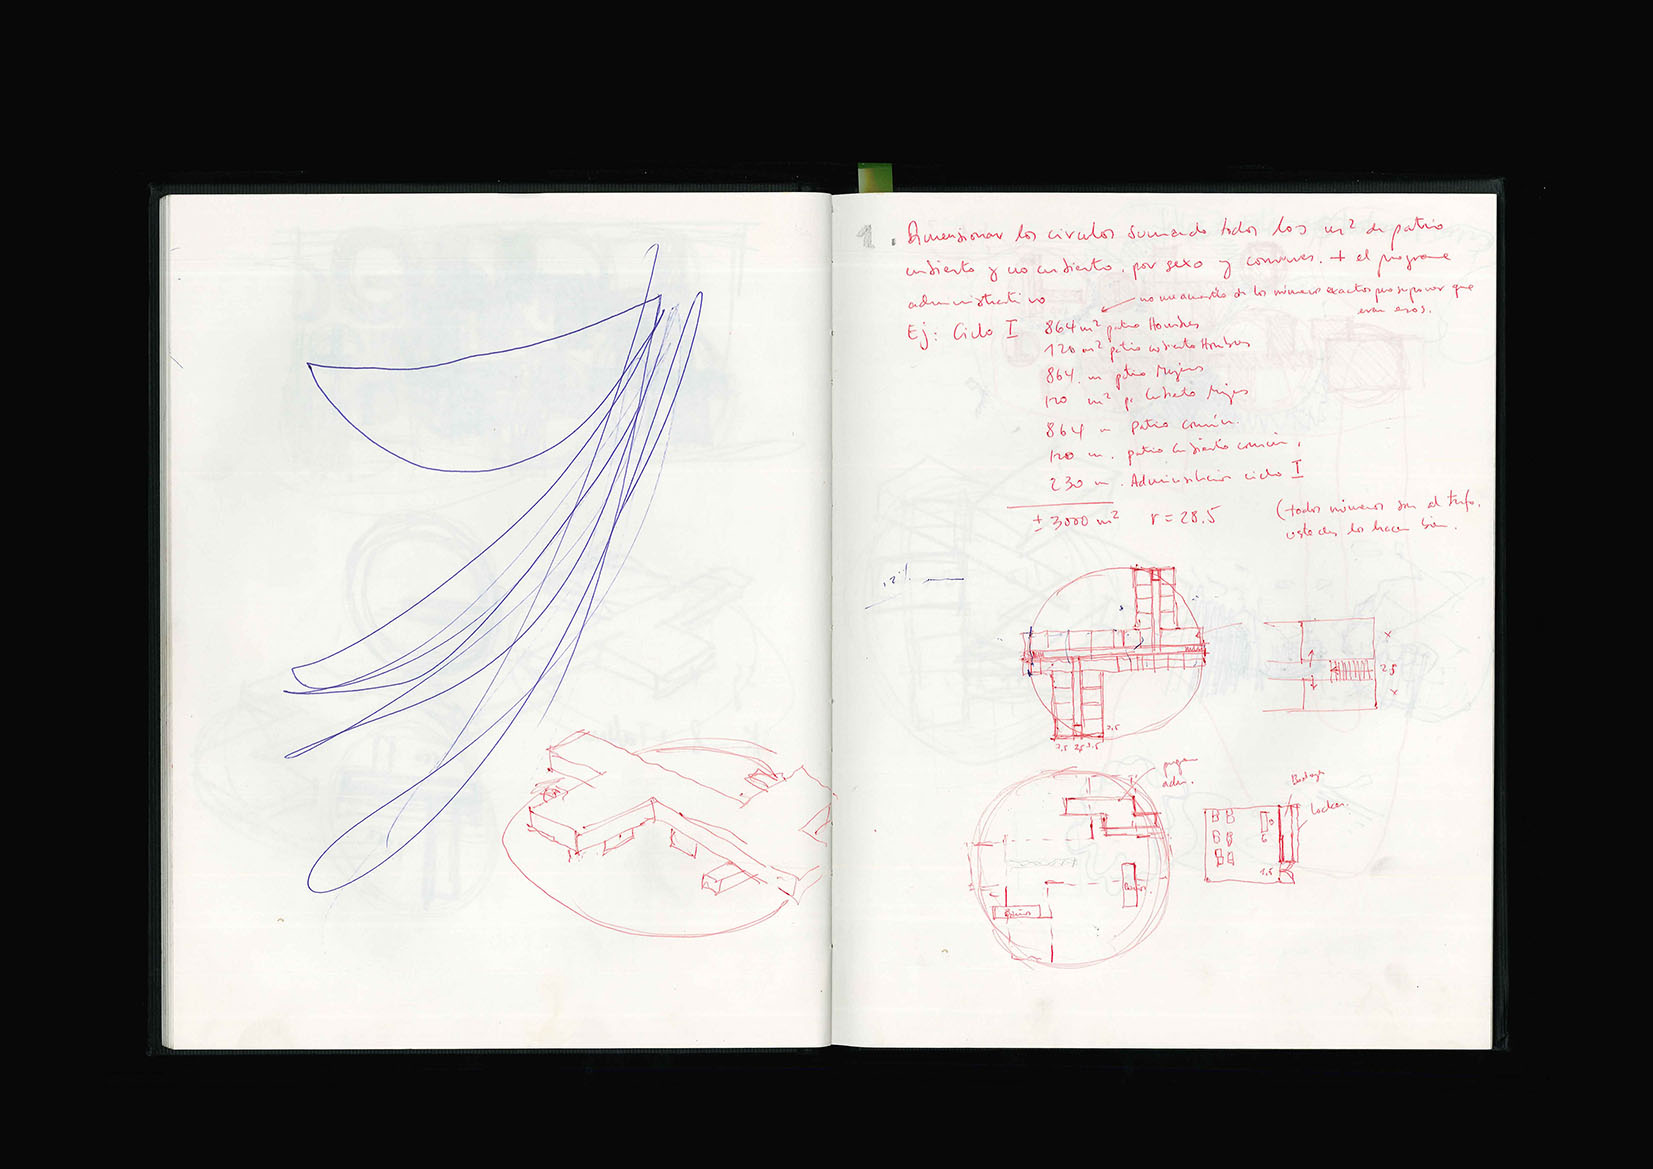 1. Dimensionar los circulos sumando todos los m² de patio
cubierto y no cubierto, por sexo y comunes. + el programa
administrativo
no me acuerdo de los números exactos pero suponer que
eran esos.
Ej: Ciclo I 864 m² patio Hombres
120 m² patio cubierto Hombres
864 m patio Mujeres
120 m² p. Cubierto Mujes
864 m patio común.
120 m. patio cubierto común.
230 m. Administración ciclo I
± 3000 m² r = 28.5
(todos números son al
ustedes los hacen bien.
2,5
3.5
3.5 2,5 3.5
programa
adm.
Bodega
Locker.
1.5
Baños
Baños